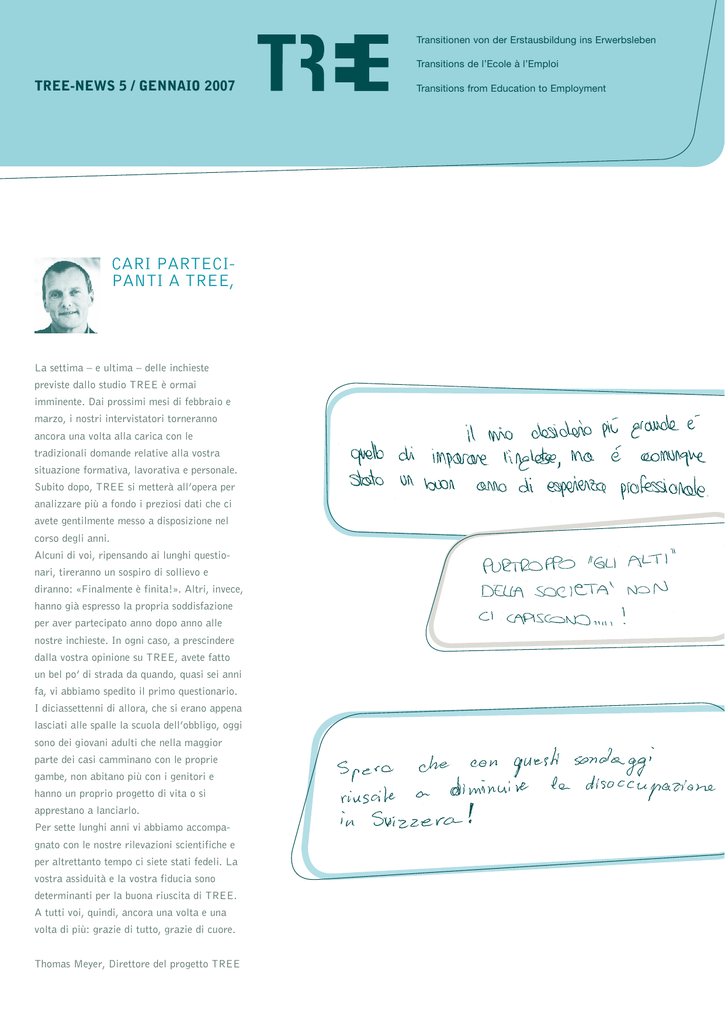 TREE-NEWS 5 / GENNAIO 2007
TREE
Transitionen von der Erstausbildung ins Erwerbsleben
Transitions de l'Ecole à l'Emploi
Transitions from Education to Employment
CARI PARTECI-
PANTI A TREE,
La settima – e ultima – delle inchieste
previste dallo studio TREE è ormai
imminente. Dai prossimi mesi di febbraio e
marzo, i nostri intervistatori torneranno
ancora una volta alla carica con le
tradizionali domande relative alla vostra
situazione formativa, lavorativa e personale.
Subito dopo, TREE si metterà all'opera per
analizzare più a fondo i preziosi dati che ci
avete gentilmente messo a disposizione nel
corso degli anni.
Alcuni di voi, ripensando ai lunghi questio-
nari, tireranno un sospiro di sollievo e
diranno: «Finalmente è finita!». Altri, invece,
hanno già espresso la propria soddisfazione
per aver partecipato anno dopo anno alle
nostre inchieste. In ogni caso, a prescindere
dalla vostra opinione su TREE, avete fatto
un bel po' di strada da quando, quasi sei anni
fa, vi abbiamo spedito il primo questionario.
I diciassettenni di allora, che si erano appena
lasciati alle spalle la scuola dell'obbligo, oggi
sono dei giovani adulti che nella maggior
parte dei casi camminano con le proprie
gambe, non abitano più con i genitori e
hanno un proprio progetto di vita o si
apprestano a lanciarlo.
Per sette lunghi anni vi abbiamo accompa-
gnato con le nostre rilevazioni scientifiche e
per altrettanto tempo ci siete stati fedeli. La
vostra assiduità e la vostra fiducia sono
determinanti per la buona riuscita di TREE.
A tutti voi, quindi, ancora una volta e una
volta di più: grazie di tutto, grazie di cuore.
Thomas Meyer, Direttore del progetto TREE
il mio desiderio più grande è
quello di imparare l'inglese, ma é comunque
stato un buon anno di esperienza professionale.
PURTROPPO "GLI ALTI"
DELLA SOCIETA' NON
CI CAPISCONO.....!
Spero che con questi sondaggi
riuscite a diminuire la disoccupazione
in Svizzera!